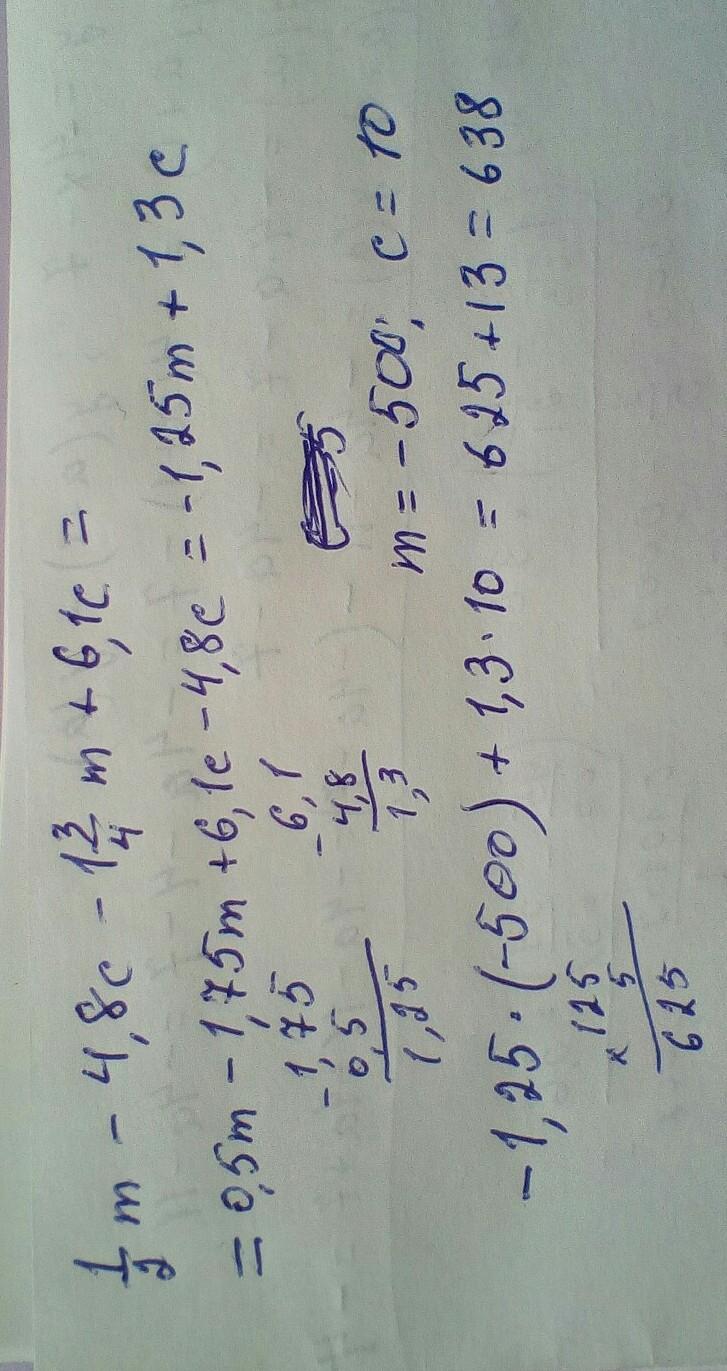 1/2 m - 4,8c - 1 3/4 m + 6,1c =
= 0,5m - 1,75m + 6,1c - 4,8c = -1,25m + 1,3c
- 1,75 - 6,1
0,5 4,8
1,25 1,3
5
m = -500; c = 10
-1,25 · (-500) + 1,3 · 10 = 625 + 13 = 638
× 125
5
625